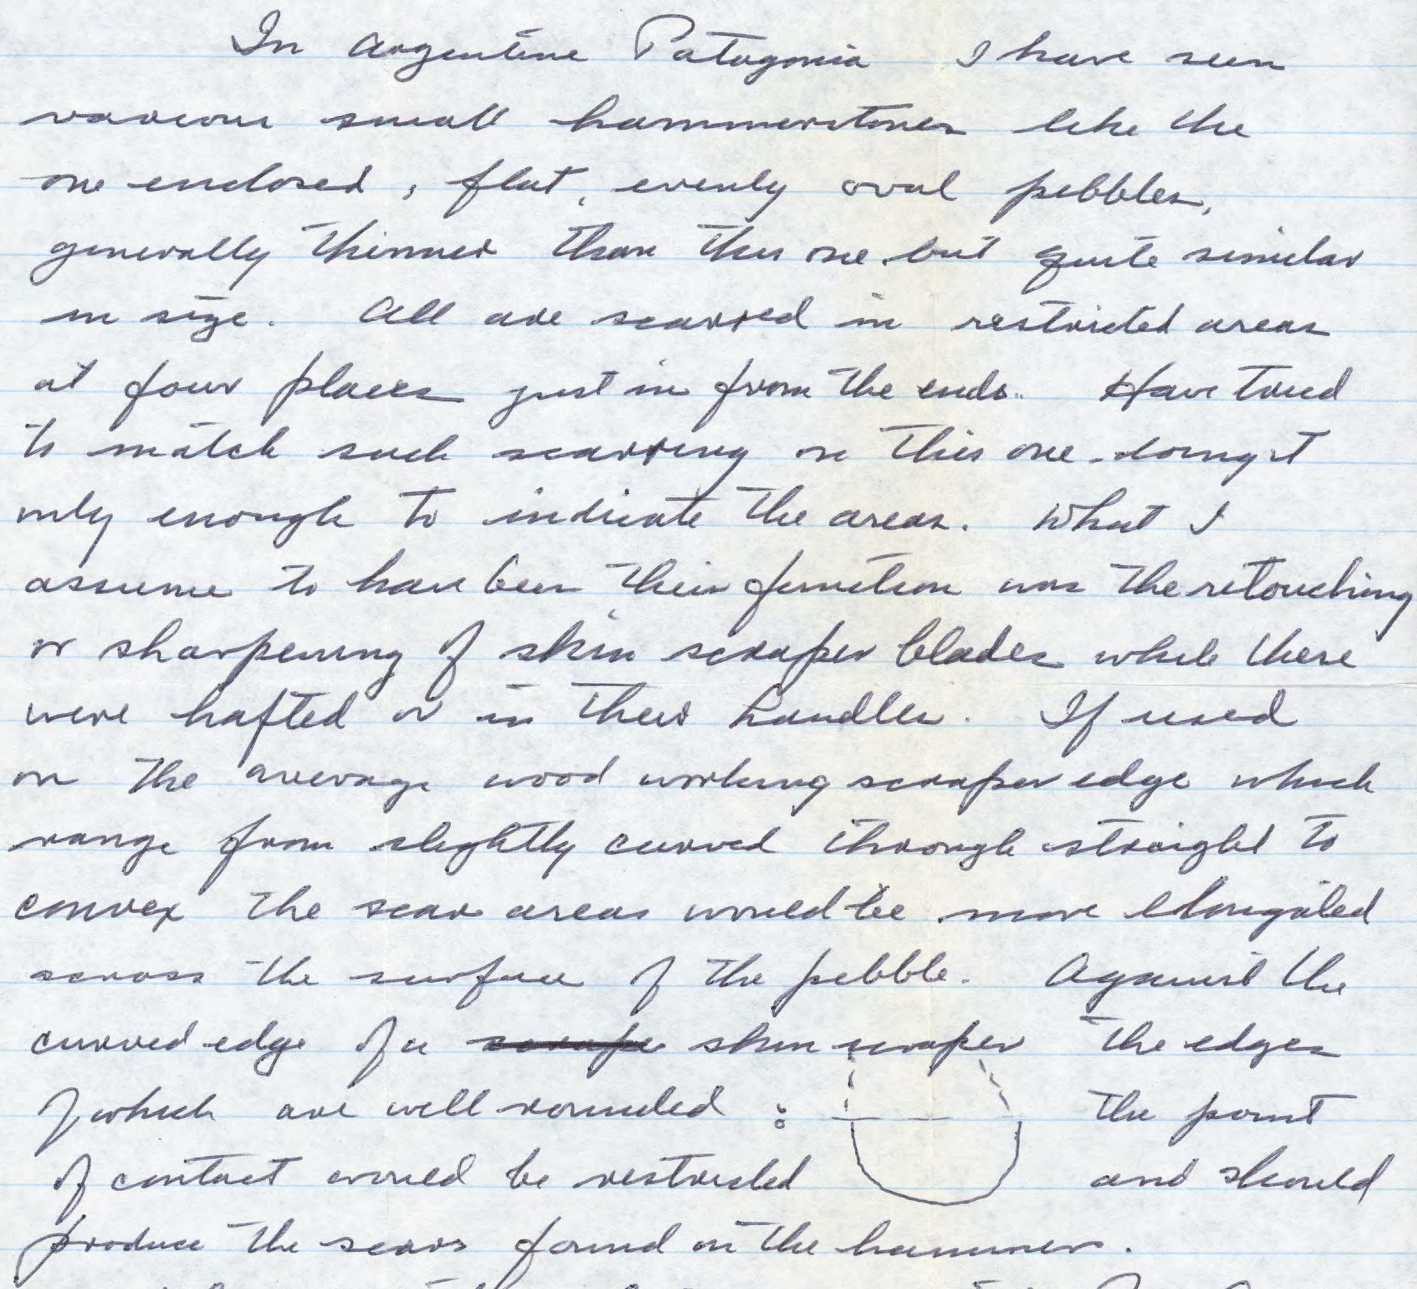 In Argentine Patagonia I have seen
various small hammerstones like the
one enclosed, flat, evenly oval pebbles,
generally thinner than this one but quite similar
in size. All are scarred in restricted areas
at four places just in from the ends. Have tried
to match such scarring on this one doing it
only enough to indicate the areas. What I
assume to have been their function was the retouching
or sharpening of skin scraper blades while these
were hafted or in their handles. If used
on the average wood working scraper edge which
range from slightly curved through straight to
convex the scar areas would be more elongated
across the surface of the pebble. Against the
curved edge of a scrape skin scraper the edges
of which are well rounded : the point
of contact would be restricted and should
produce the scars found on the hammers.